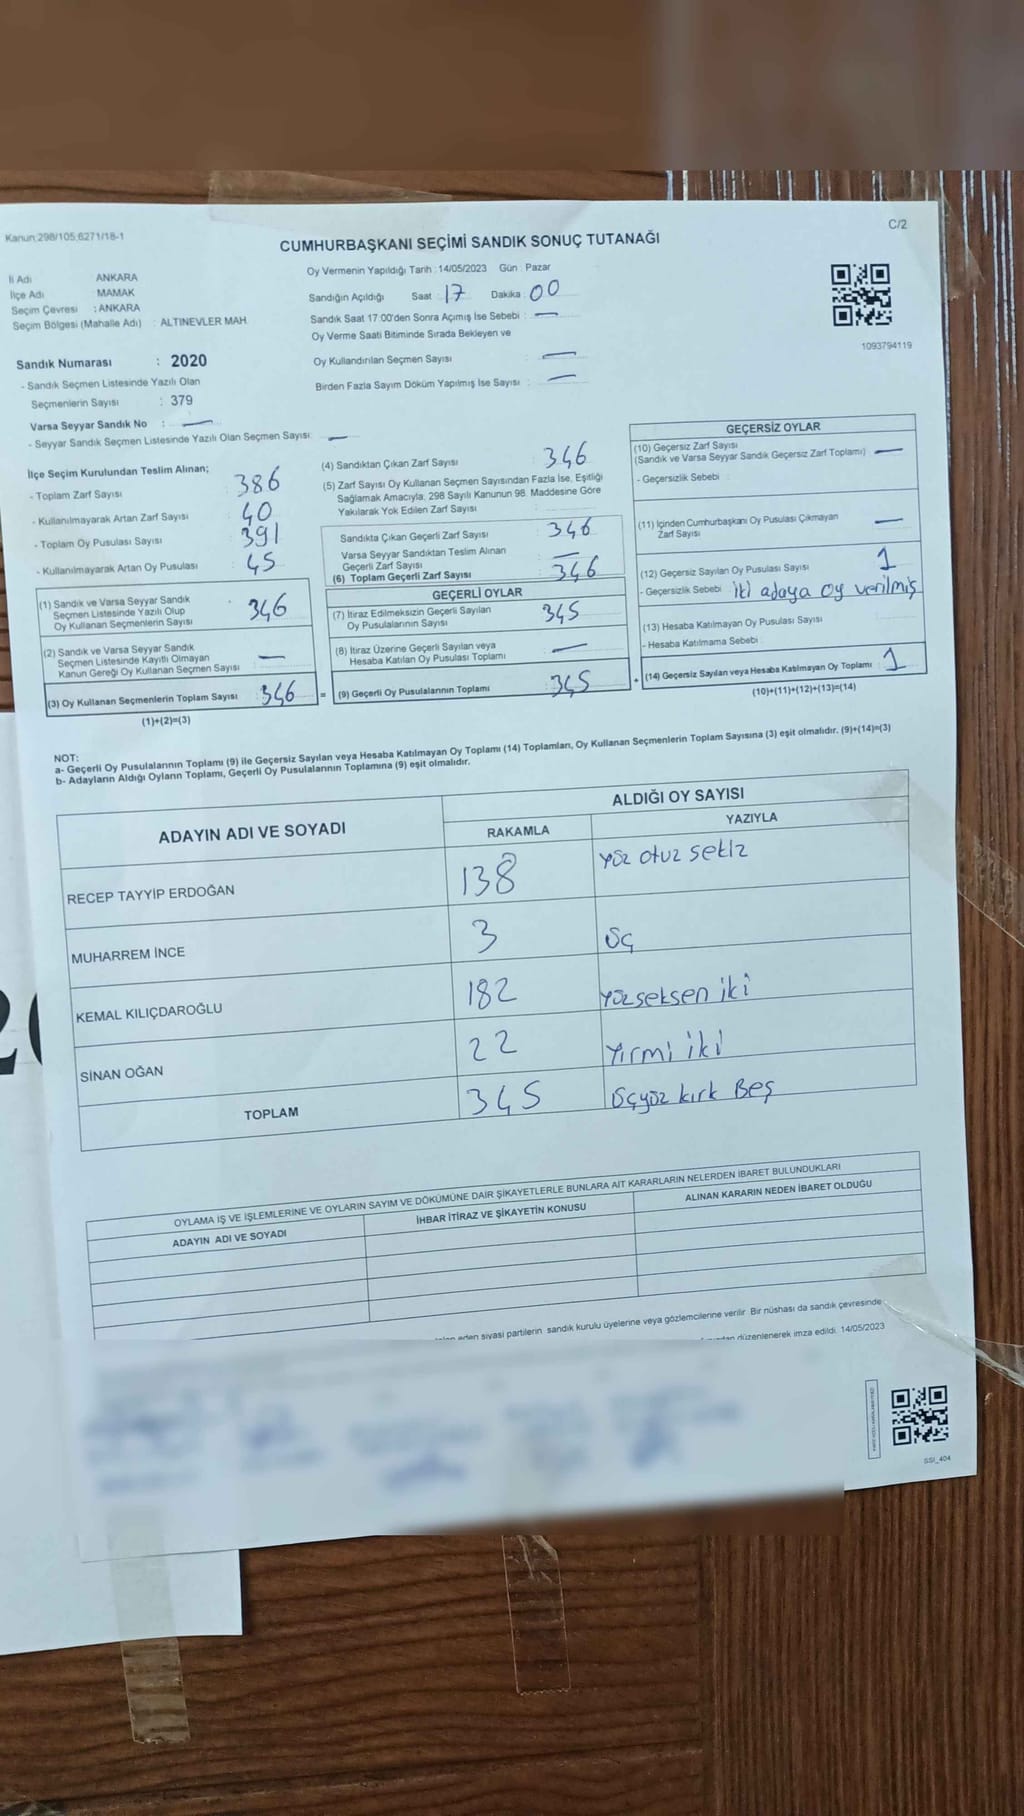 Kanun:298/105;6271/18-1
C/2
CUMHURBAŞKANI SEÇİMİ SANDIK SONUÇ TUTANAĞI
İl Adı ANKARA
İlçe Adı MAMAK
Seçim Çevresi : ANKARA
Seçim Bölgesi (Mahalle Adı) : ALTINEVLER MAH.
Oy Vermenin Yapıldığı Tarih : 14/05/2023 Gün : Pazar
Sandığın Açıldığı Saat : 17 Dakika : 00
Sandık Saat 17:00'den Sonra Açımış İse Sebebi : —
Oy Verme Saati Bitiminde Sırada Bekleyen ve
Oy Kullandırılan Seçmen Sayısı —
Birden Fazla Sayım Döküm Yapılmış İse Sayısı : —
1093794119
Sandık Numarası : 2020
- Sandık Seçmen Listesinde Yazılı Olan
Seçmenlerin Sayısı : 379
Varsa Seyyar Sandık No : —
- Seyyar Sandık Seçmen Listesinde Yazılı Olan Seçmen Sayısı: —
İlçe Seçim Kurulundan Teslim Alınan;
- Toplam Zarf Sayısı 386
- Kullanılmayarak Artan Zarf Sayısı 40
- Toplam Oy Pusulası Sayısı 391
- Kullanılmayarak Artan Oy Pusulası 45
(1) Sandık ve Varsa Seyyar Sandık
Seçmen Listesinde Yazılı Olup
Oy Kullanan Seçmenlerin Sayısı 346
(2) Sandık ve Varsa Seyyar Sandık
Seçmen Listesinde Kayıtlı Olmayan
Kanun Gereği Oy Kullanan Seçmen Sayısı —
(3) Oy Kullanan Seçmenlerin Toplam Sayısı : 346 =
(1)+(2)=(3)
(4) Sandıktan Çıkan Zarf Sayısı : 346
(5) Zarf Sayısı Oy Kullanan Seçmen Sayısından Fazla İse, Eşitliği
Sağlamak Amacıyla; 298 Sayılı Kanunun 98. Maddesine Göre
Yakılarak Yok Edilen Zarf Sayısı
Sandıkta Çıkan Geçerli Zarf Sayısı 346
Varsa Seyyar Sandıktan Teslim Alınan
Geçerli Zarf Sayısı —
(6) Toplam Geçerli Zarf Sayısı 346
GEÇERLİ OYLAR
(7) İtiraz Edilmeksizin Geçerli Sayılan
Oy Pusulalarının Sayısı 345
(8) İtiraz Üzerine Geçerli Sayılan veya
Hesaba Katılan Oy Pusulası Toplamı —
(9) Geçerli Oy Pusulalarının Toplamı 345 +
GEÇERSİZ OYLAR
(10) Geçersiz Zarf Sayısı
(Sandık ve Varsa Seyyar Sandık Geçersiz Zarf Toplamı) —
- Geçersizlik Sebebi :
(11) İçinden Cumhurbaşkanı Oy Pusulası Çıkmayan
Zarf Sayısı —
(12) Geçersiz Sayılan Oy Pusulası Sayısı 1
- Geçersizlik Sebebi İki adaya oy verilmiş
(13) Hesaba Katılmayan Oy Pusulası Sayısı
- Hesaba Katılmama Sebebi
(14) Geçersiz Sayılan veya Hesaba Katılmayan Oy Toplamı : 1
(10)+(11)+(12)+(13)=(14)
NOT:
a- Geçerli Oy Pusulalarının Toplamı (9) ile Geçersiz Sayılan veya Hesaba Katılmayan Oy Toplamı (14) Toplamları, Oy Kullanan Seçmenlerin Toplam Sayısına (3) eşit olmalıdır. (9)+(14)=(3)
b- Adayların Aldığı Oyların Toplamı, Geçerli Oy Pusulalarının Toplamına (9) eşit olmalıdır.
ADAYIN ADI VE SOYADI
ALDIĞI OY SAYISI
RAKAMLA YAZIYLA
RECEP TAYYİP ERDOĞAN 138 yüz otuz sekiz
MUHARREM İNCE 3 üç
KEMAL KILIÇDAROĞLU 182 Yüzseksen iki
SİNAN OĞAN 22 Yirmi iki
TOPLAM 345 üçyüz kırk Beş
OYLAMA İŞ VE İŞLEMLERİNE VE OYLARIN SAYIM VE DÖKÜMÜNE DAİR ŞİKAYETLERLE BUNLARA AİT KARARLARIN NELERDEN İBARET BULUNDUKLARI
ADAYIN ADI VE SOYADI İHBAR İTİRAZ VE ŞİKAYETİN KONUSU ALINAN KARARIN NEDEN İBARET OLDUĞU
eden siyasi partilerin sandık kurulu üyelerine veya gözlemcilerine verilir. Bir nüshası da sandık çevresinde
düzenlenerek imza edildi. 14/05/2023
SSI_404